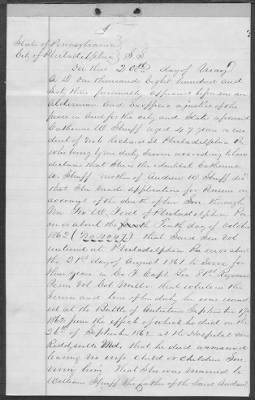 1
State of Pennsylvania
City of Philadelphia } S.S.
On this 20th day of May
A D One thousand Eight hundred and
Sixty three personally appeared before me an
Alderman and Exofficio a justice of the
peace in and for the city and State aforesaid
Catharine W. Shuff aged 47 years a resi
dent of Philadelphia Pa
who being by me duly sworn according to law
declares that She is the identical Catharine
W. Shuff mother of Andrew W. Shuff dec
that She made application for Pension on
account of the death of her Son through
Wm W. Ford of Philadelphia Pa
on or about the Tenth day of October
1862 that Said Son Vol
unteered at Philadelphia Pa on or about
the 21st day of August 1861 to Serve for
three years in Co F Capt Regiment
Penn Vol Col that while in the
Service and line of duty he was wound
ed at the Battle of Antietam September 17th
1862 from the effect of which he died on the
26th of September 1862 at the Hospital near
Keedysville Md, that he died unmarried
leaving no wife child or children Sur
viving him That She was married to
William Shuff the father of the Said Andrew